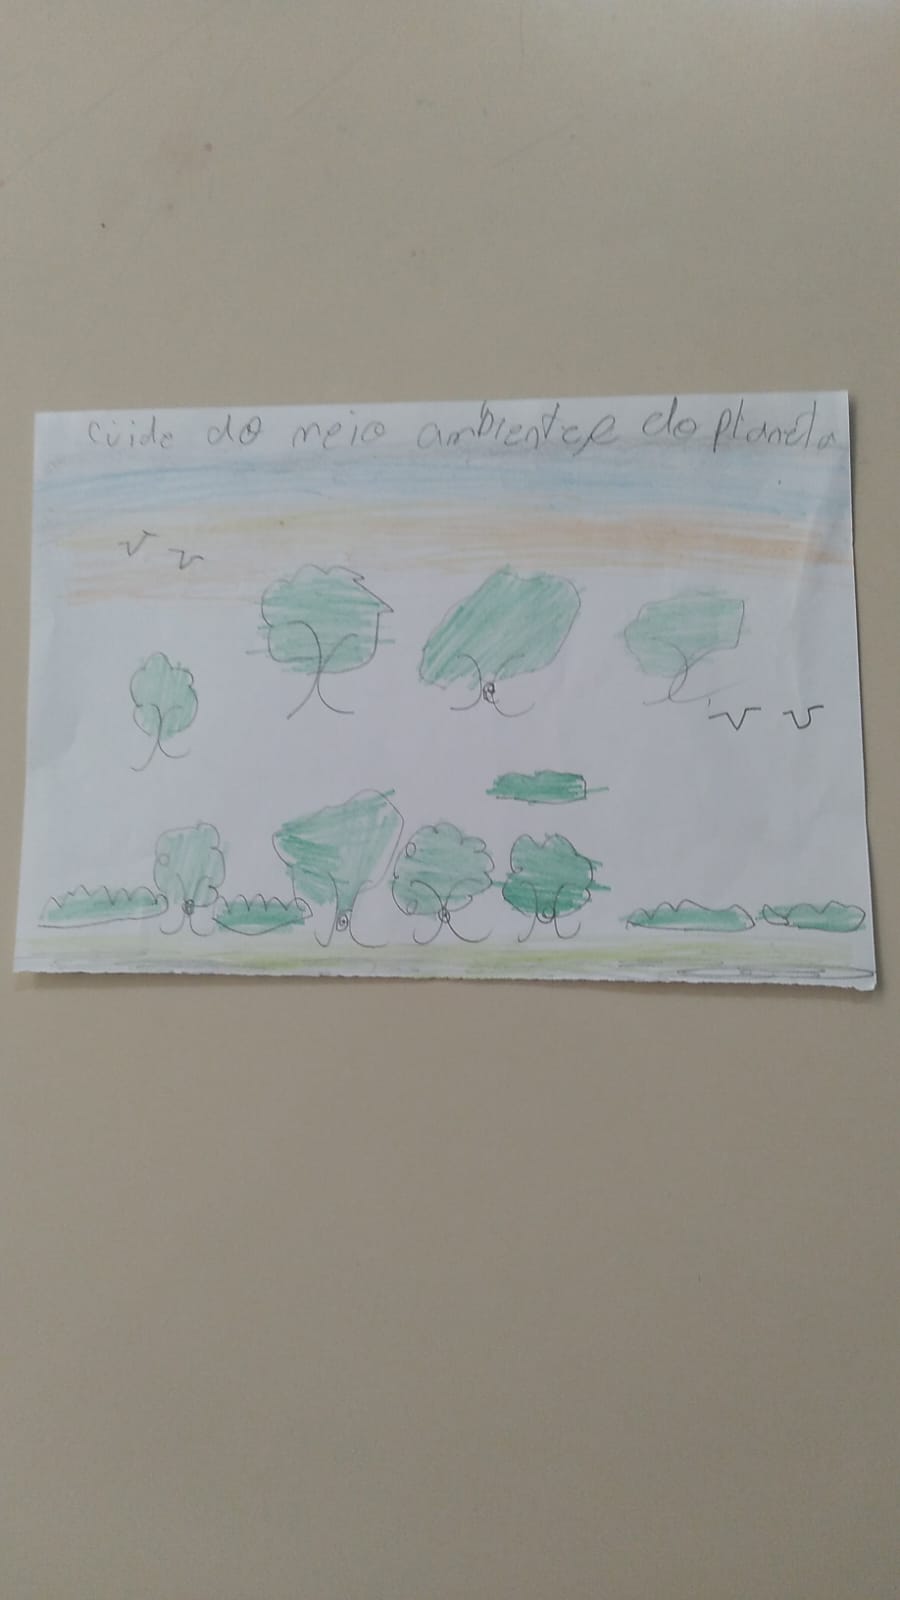 cuide do meio ambiente e do planeta